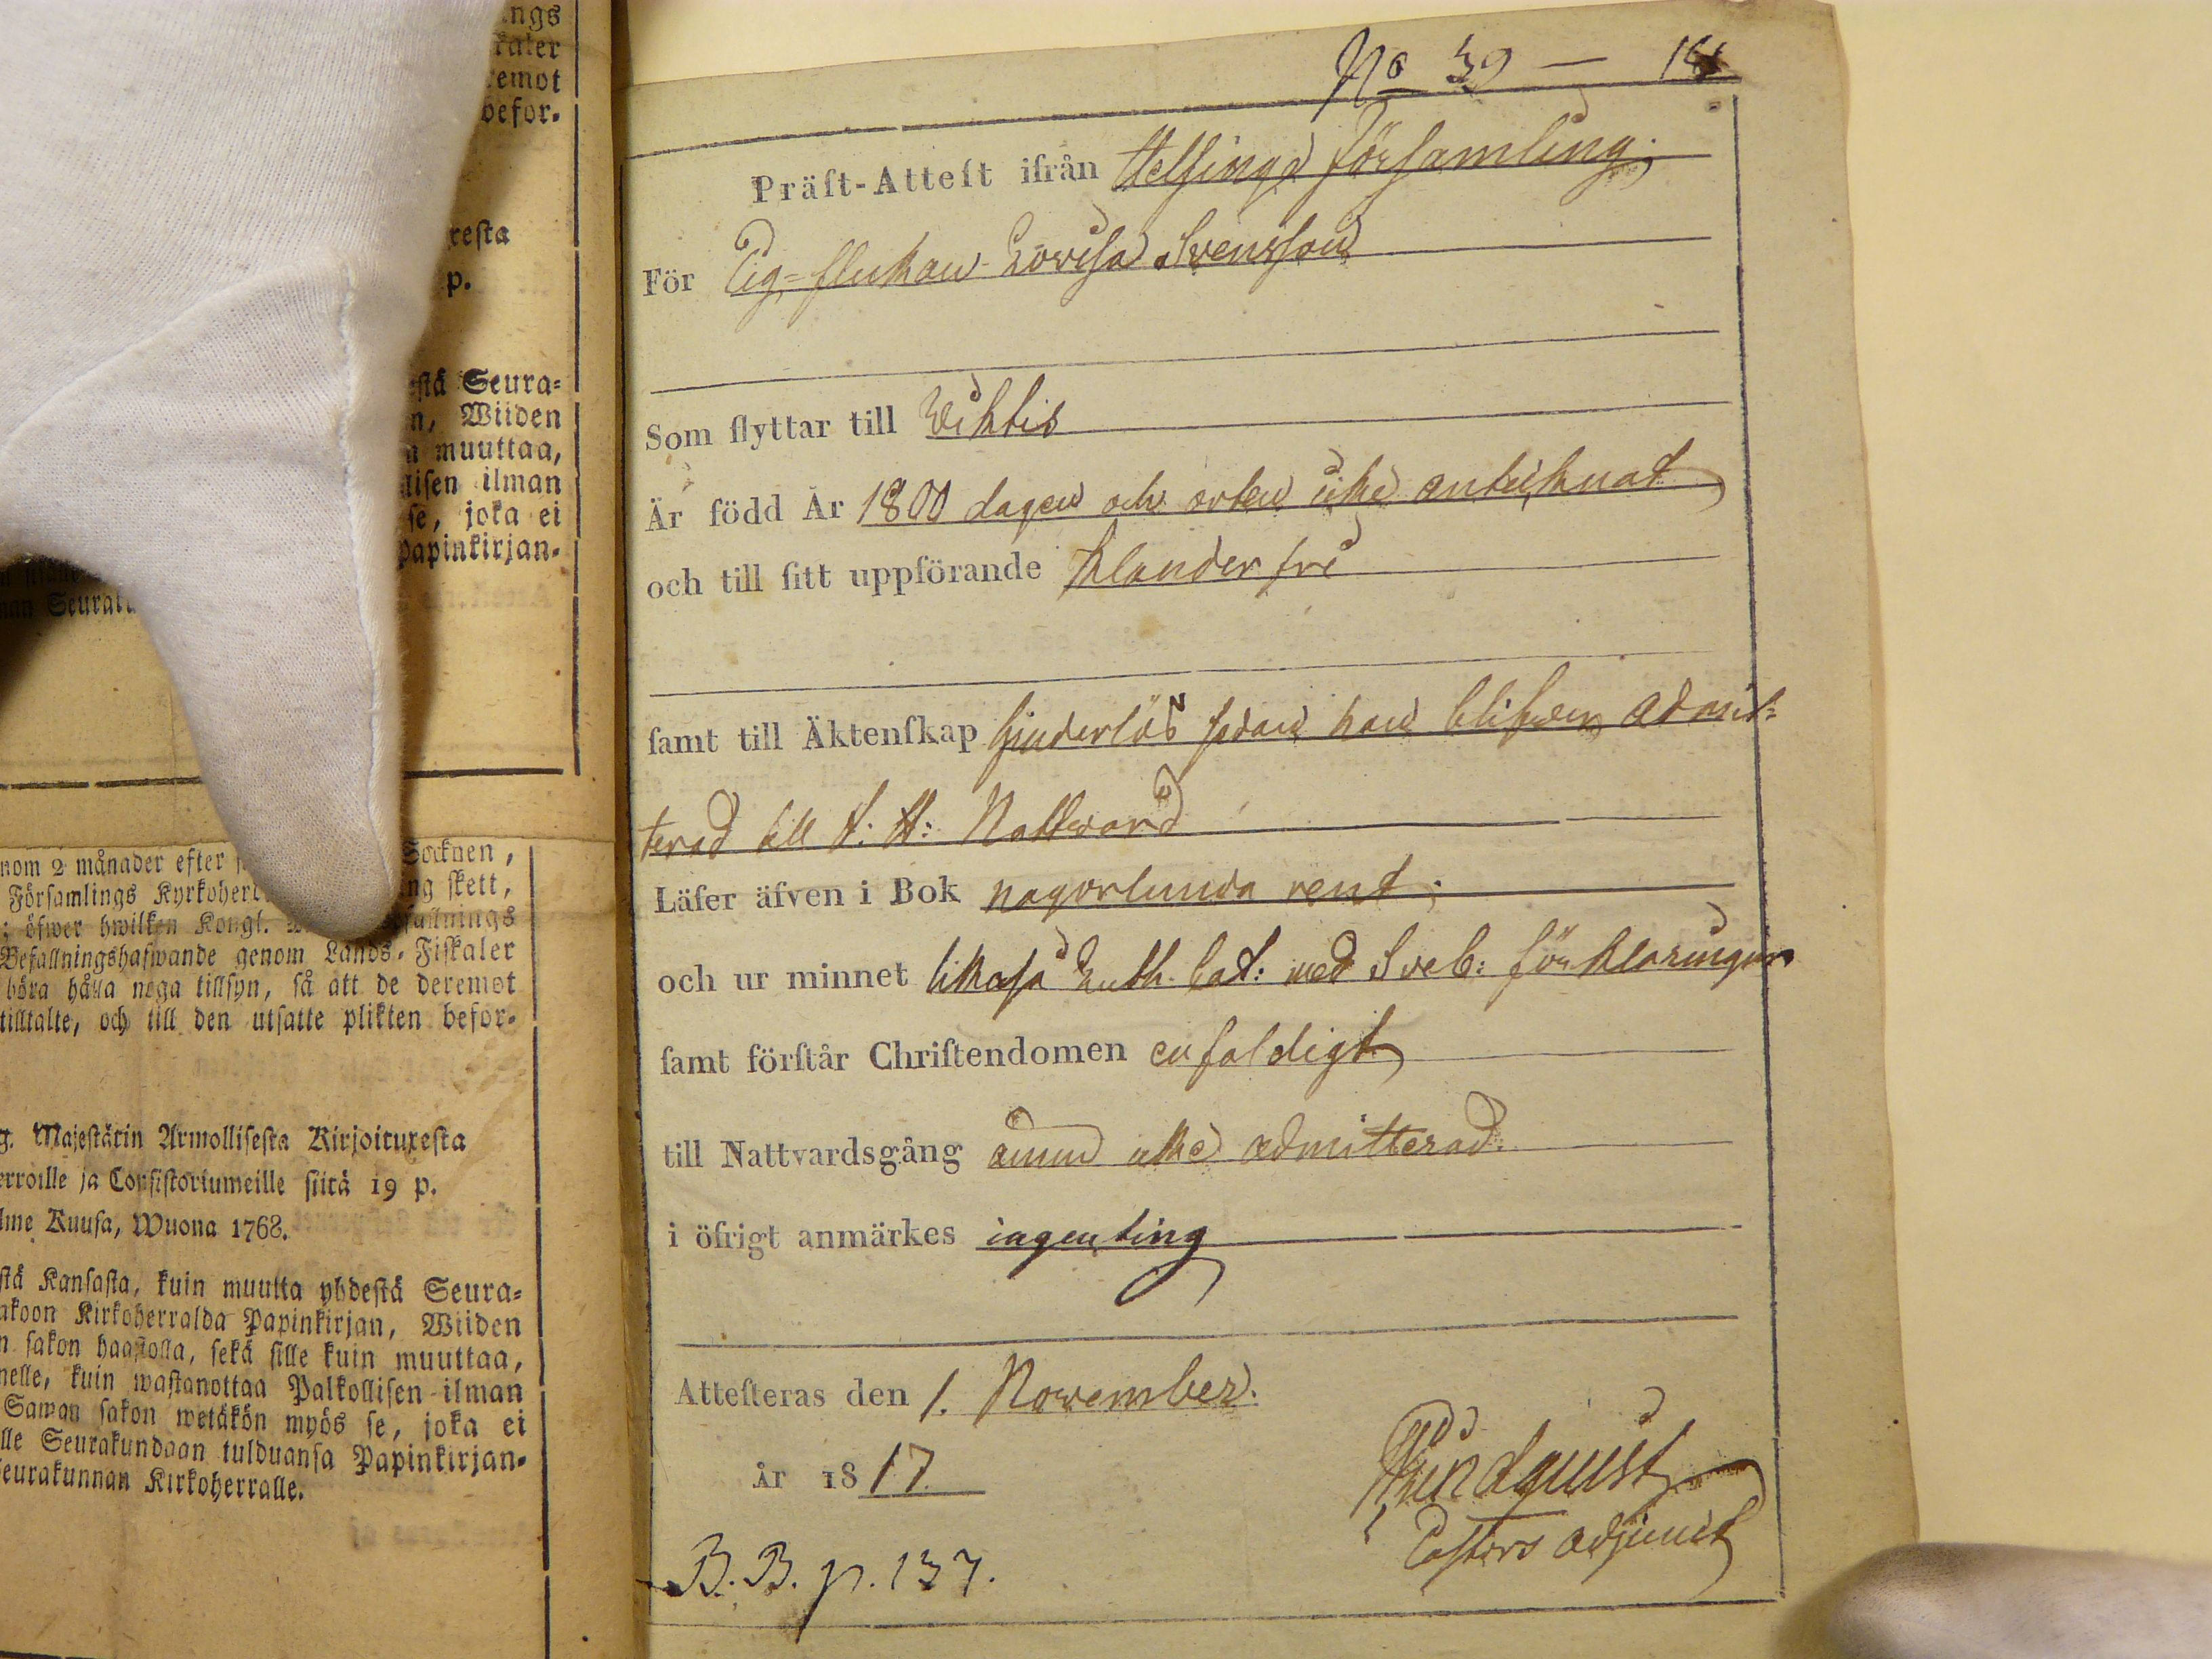 ngs
kaler
emot
befor-
resta
p.
estä Seura-
n, Wiiden
a muuttaa,
llisen ilman
se, joka ei
Papinkirjan-
nan Seuraku
nom 2 månader efter Socknen,
Församlings Kyrkoher ng skett,
; öfwer hwilken Kongl. fallnings
Befallningshafwande genom Lands-Fiskaler
böra hålla noga tillsyn, så att de deremot
tilltalte, och till den utsatte plikten befor-
g. Majestätin Armollisesta Kirjoituxesta
erroille ja Consistoriumeille siitä 19 p.
lme Kuusa, Wuona 1768.
stä Kansasta, kuin muutta yhdestä Seura-
akoon Kirkoherralda Papinkirjan, Wiiden
n sakon haastolla, sekä sille kuin muuttaa,
nelle, kuin wastanottaa Palkollisen ilman
Saman sakon wetäkön myös se, joka ei
lle Seurakundaan tulduansa Papinkirjan-
seurakunnan Kirkoherralle.
No 39 —
Präst-Attest ifrån Helsinge församling;
För Pig-flickan Lovisa Svensson
Som flyttar till Vichtis
Är född År 1800 dagen och orten icke anteiknat
och till sitt uppförande klanderfri
samt till Äktenskap hinderlös sedan hon blifven admit-
terad till H: H: Nattvard
Läser äfven i Bok nagorlunda rent;
och ur minnet likaså Luth. Cat: med Sveb: förklaringar
samt förstår Christendomen enfaldigt
till Nattvardsgång ännu icke admitterad.
i öfrigt anmärkes ingenting
Attesteras den 1. November.
År 1817
Lindquist
Pastors adjunct
B.B. p. 137.